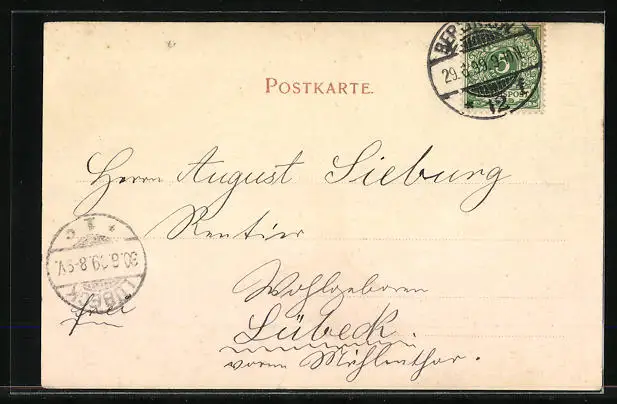 POSTKARTE.
29.6.99.
12
5
Herrn August Sieburg
Rentier
Wohlgeboren
Lübeck.
vorm Mühlenthor.
frei
LÜBECK
30.6.99. 8-9V.
* 1 c